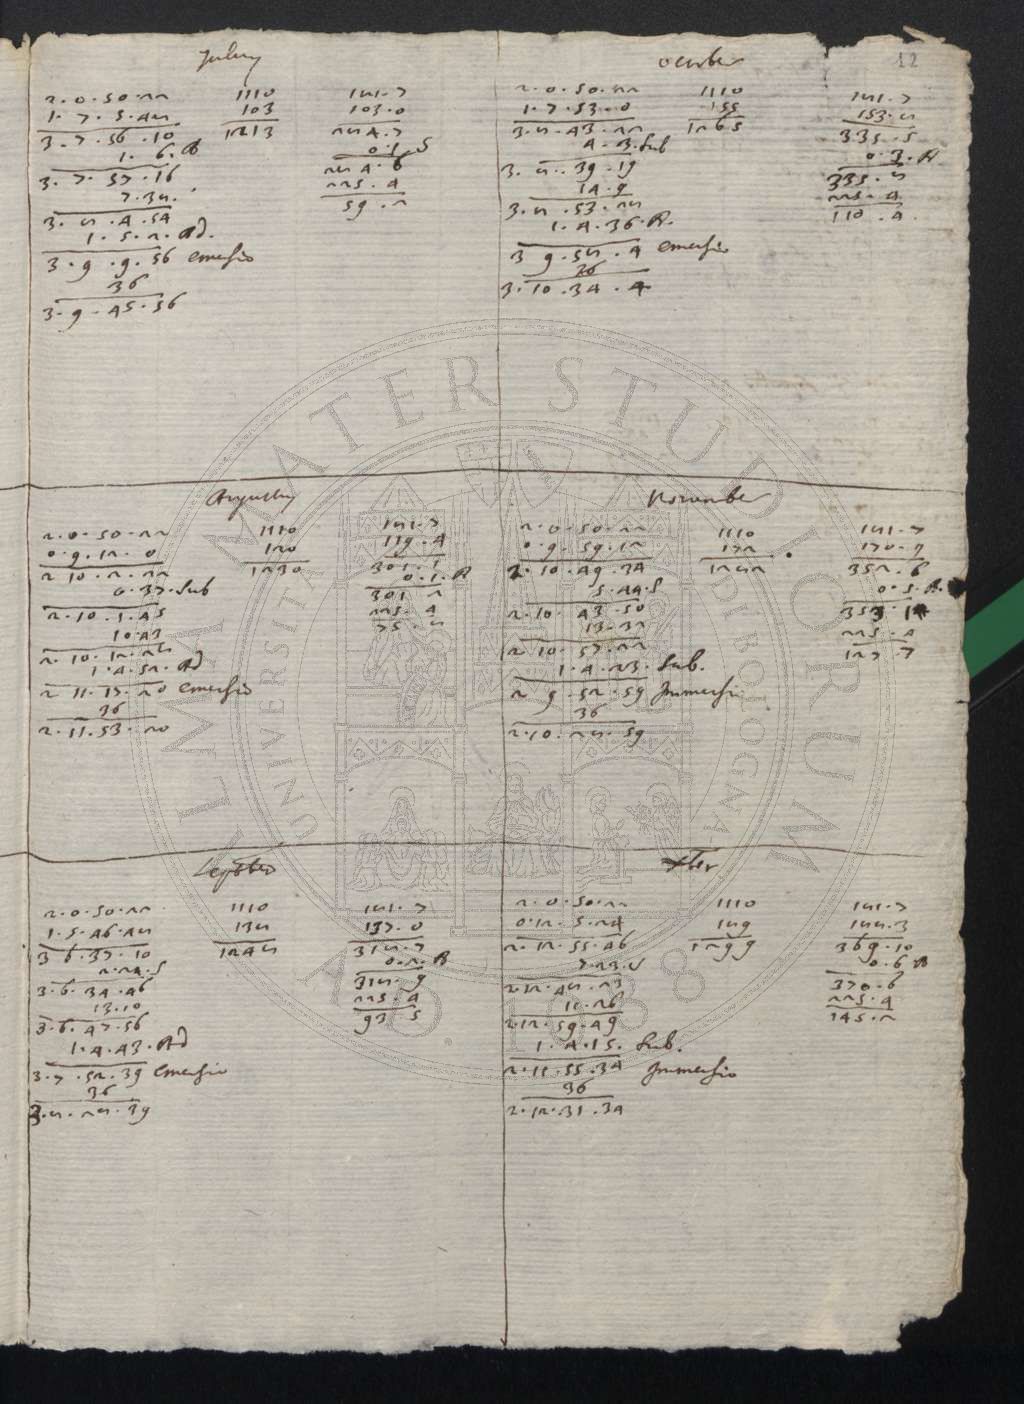 12
July
2.0.50.22
1.7.5.48
3.7.56.10
1.6.A
3.7.57.16
7.38.
3.8.4.54
1.5.2. Ad.
3.9.9.56 emersio
36
3.9.45.56
1110
103
1213
181.7
103.0
284.7
0.1 S
284.6
225.4
59.2
october
2.0.50.22
1.7.53.0
3.8.43.22
4.3.Sub
3.8.39.19
14.9
3.8.53.28
1.4.36.A.
3 9.58.4 emersio
36
3.10.34.4
1110
155
1265
181.7
153.8
335.5
0.3.A
335.8
225.4
110.4.
Augusty
2.0.50.22
0.9.12.0
2 10.2.22
0.37.Sub
2.10.1.45
10.43
2.10.12.28
1.4.52.Ad
2 11.17.20 emersio
36
2.11.53.20
1110
120
1230
181.7
119.4
301.1
0.1.A
301 2
225.4
75.8
November
2.0.50.22
0.9.59.12
2.10.49.34
5.44.S
2.10.43.50
13.32
2 10.57.22
1.4.23.Sub.
2 9.52.59 Immersi
36
2.10.28.59
1110
172
1282
181.7
170.9
352.6
0.5.A.
353.1
225.4
127.7
Septber
2.0.50.22
1.5.46.48
3 6.37.10
2.24.S
3.6.34.46
13.10
3.6.47.56
1.4.43.Ad
3.7.52.39 emersio
36
3.8.28.39
1110
138
1248
181.7
137.0
318.7
0.2.A
318.9
225.4
93 5
Xber
2.0.50.22
0.12.5.24
2.12.55.46
7.23.S
2.12.48.23
11.26
2.12.59.49
1.4.15. Sub.
2.11.55.34 Immersio
36
2.12.31.34
1110
189
1299
181.7
188.3
369.10
0.6 A
370.6
225.4
145.2
ALMA MATER STUDIORUM
UNIVERSITÀ DI BOLOGNA
A.D. 1088